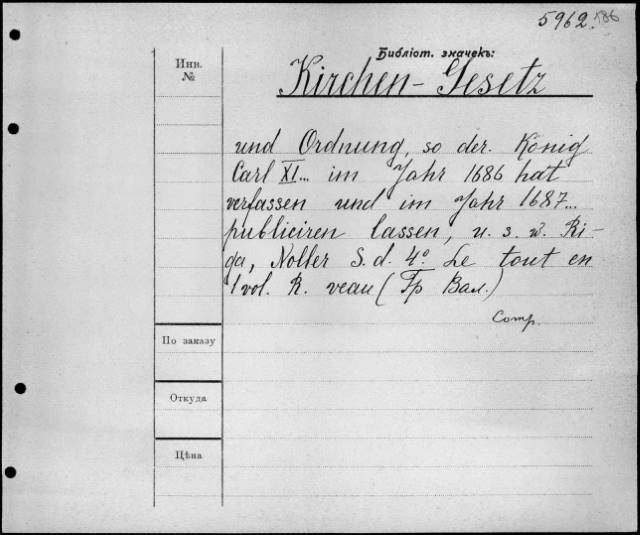 5962. 186
Библіот. значекъ:
Инв.
№
Kirchen-Gesetz
und Ordnung, so der König
Carl XI... im Jahr 1686 hat
verfassen und im Jahr 1687...
publiciren lassen, u. s. w. Ri-
ga, Noller S. d. 4° Le tout en
1 vol. R. veau (Гр Вал.)
Comp.
По заказу
Откуда
Цѣна